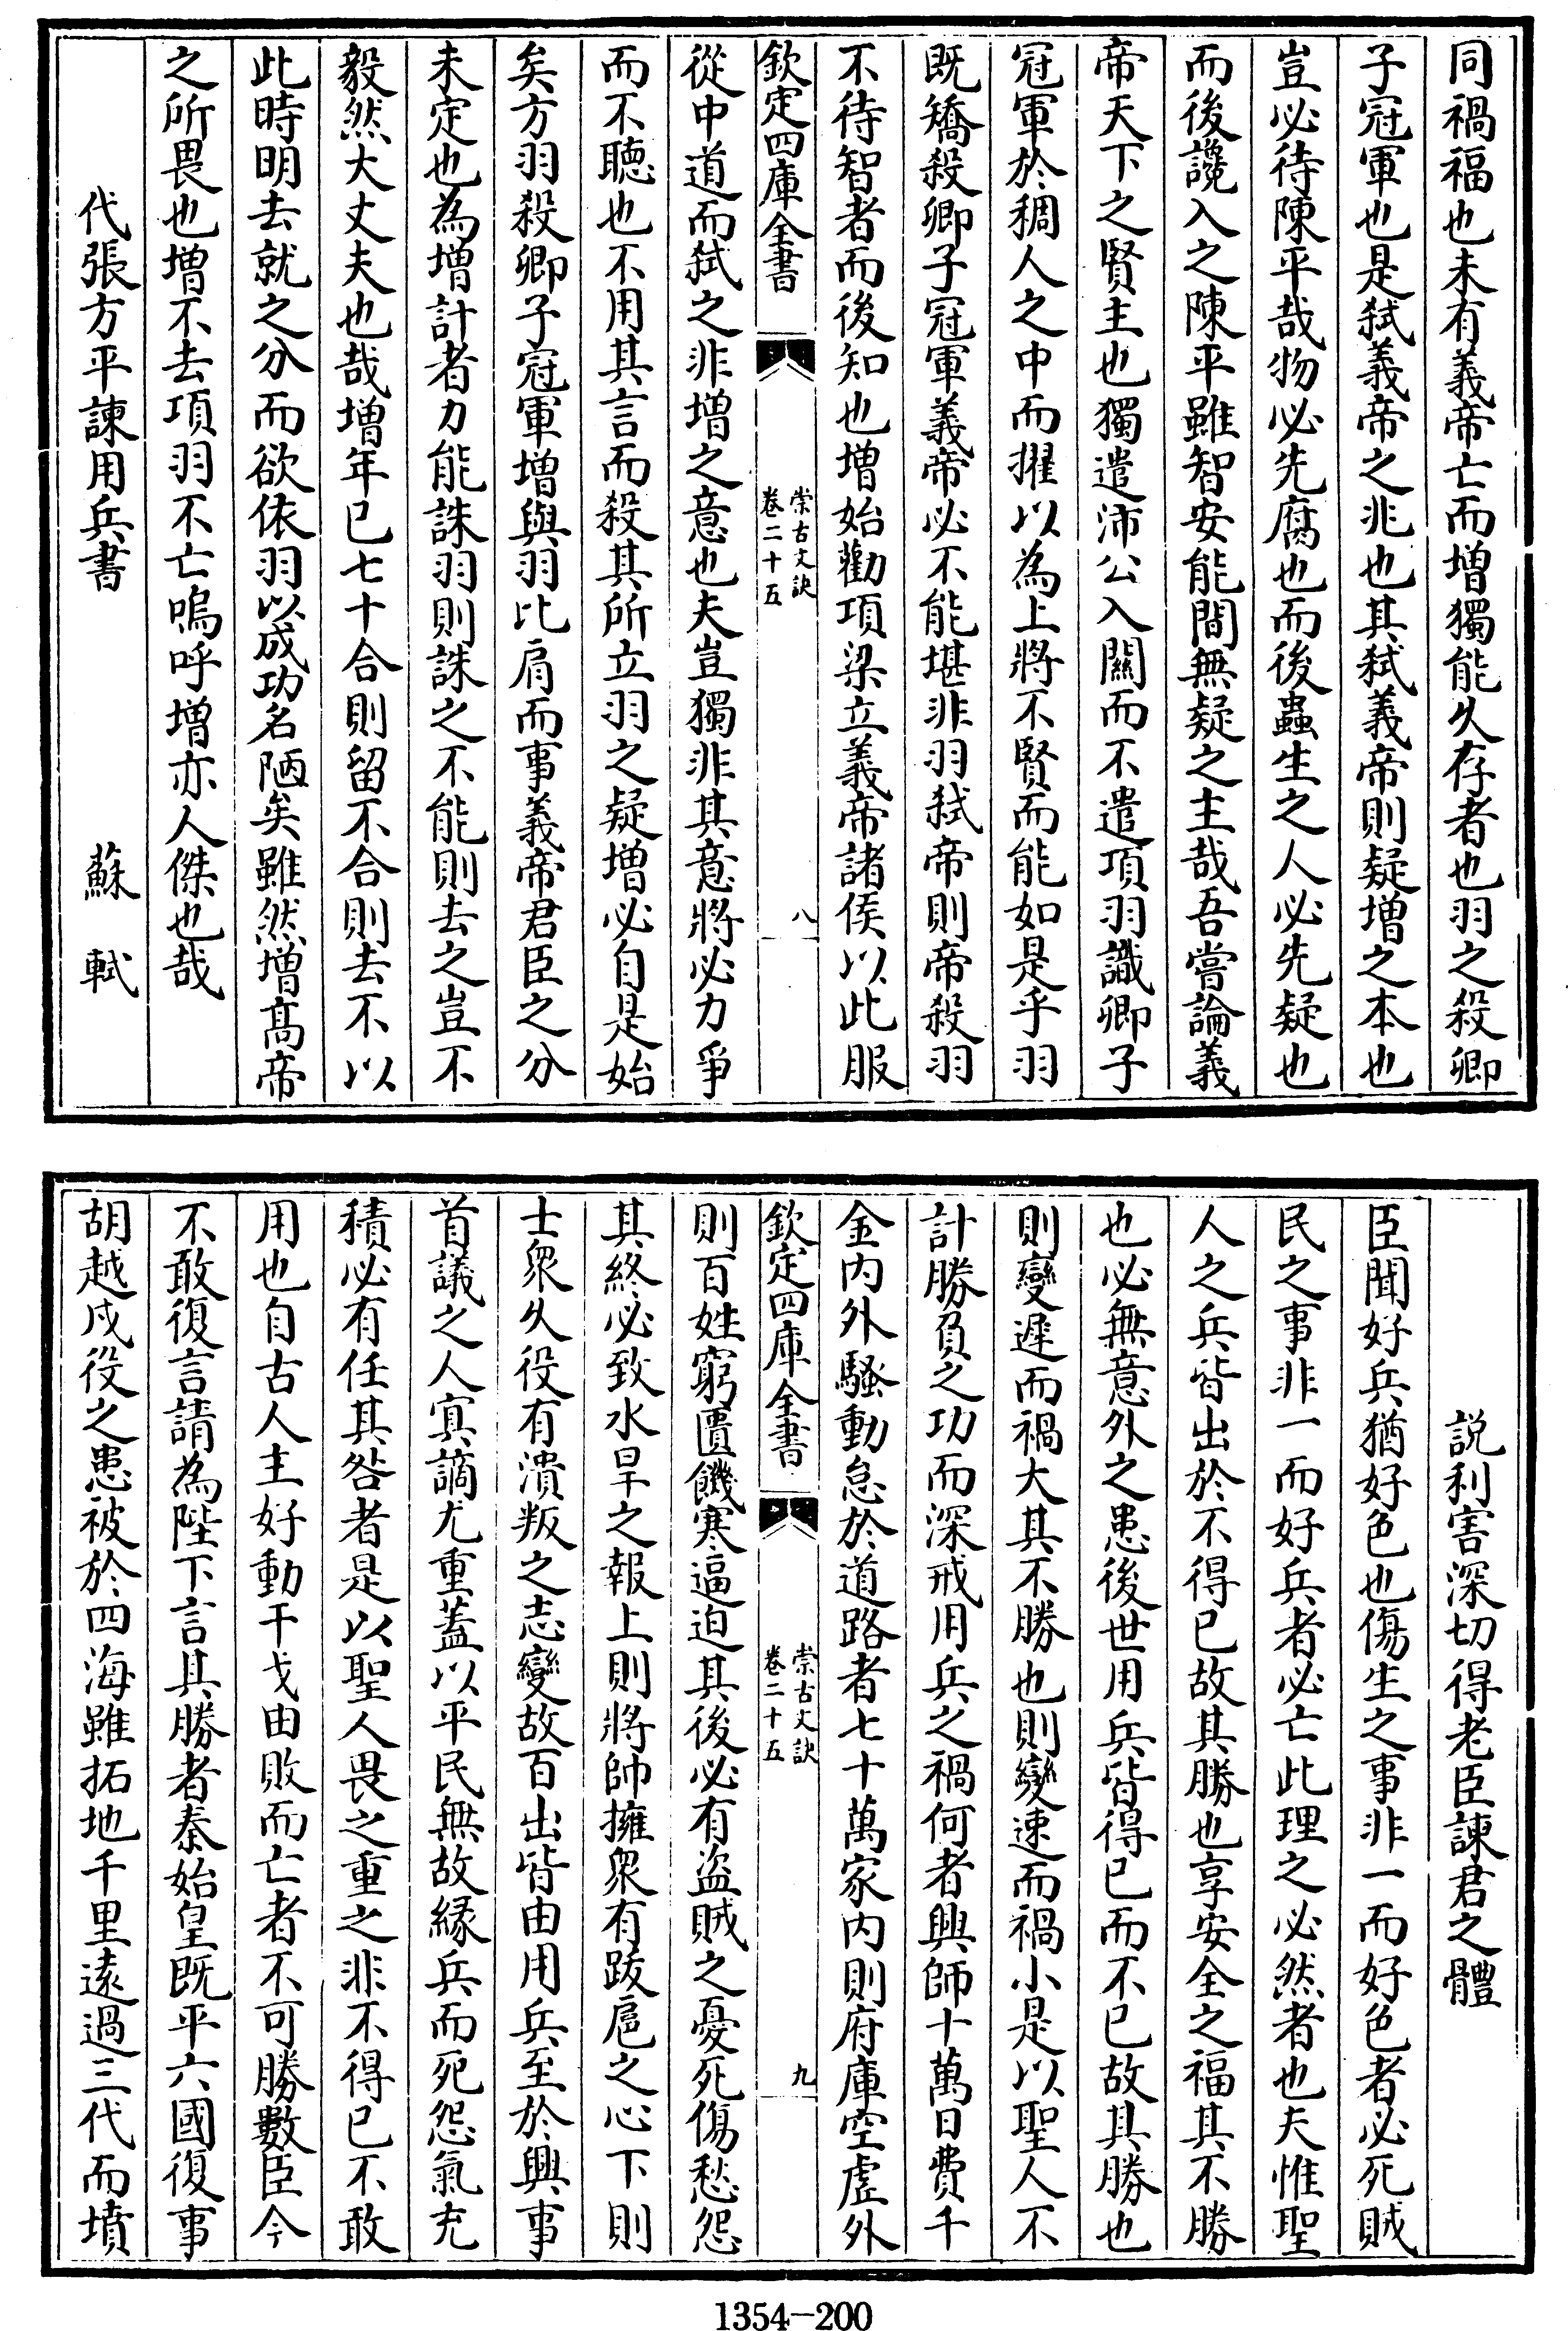 同禍福也未有義帝亡而增獨能久存者也羽之殺卿
子冠軍也是弑義帝之兆也其弑義帝則疑增之本也
豈必待陳平哉物必先腐也而後蟲生之人必先疑也
而後讒入之陳平雖智安能間無疑之主哉吾嘗論義
帝天下之賢主也獨遣沛公入關而不遣項羽識卿子
冠軍於稠人之中而擢以為上將不賢而能如是乎羽
既矯殺卿子冠軍義帝必不能堪非羽弑帝則帝殺羽
不待智者而後知也增始勸項梁立義帝諸侯以此服
欽定四庫全書
崇古文訣
卷二十五
八
從中道而弑之非增之意也夫豈獨非其意將必力爭
而不聽也不用其言而殺其所立羽之疑增必自是始
矣方羽殺卿子冠軍增與羽比肩而事義帝君臣之分
未定也為增計者力能誅羽則誅之不能則去之豈不
毅然大丈夫也哉增年已七十合則留不合則去不以
此時明去就之分而欲依羽以成功名陋矣雖然增髙帝
之所畏也增不去項羽不亡嗚呼增亦人傑也哉
代張方平諫用兵書 蘇軾
說利害深切得老臣諫君之體
臣聞好兵猶好色也傷生之事非一而好色者必死賊
民之事非一而好兵者必亡此理之必然者也夫惟聖
人之兵皆出於不得已故其勝也享安全之福其不勝
也必無意外之患後世用兵皆得已而不已故其勝也
則變遲而禍大其不勝也則變速而禍小是以聖人不
計勝負之功而深戒用兵之禍何者興師十萬日費千
金内外騷動怠於道路者七十萬家内則府庫空虛外
欽定四庫全書
崇古文訣
卷二十五
九
則百姓窮匱饑寒逼迫其後必有盜賊之憂死傷愁怨
其終必致水旱之報上則將帥擁衆有跋扈之心下則
士衆久役有潰叛之志變故百出皆由用兵至於興事
首議之人冥謫尤重蓋以平民無故緣兵而死怨氣充
積必有任其咎者是以聖人畏之重之非不得已不敢
用也自古人主好動干戈由敗而亡者不可勝數臣今
不敢復言請為陛下言其勝者秦始皇既平六國復事
胡越戍役之患被於四海雖拓地千里逺過三代而墳
1354-200